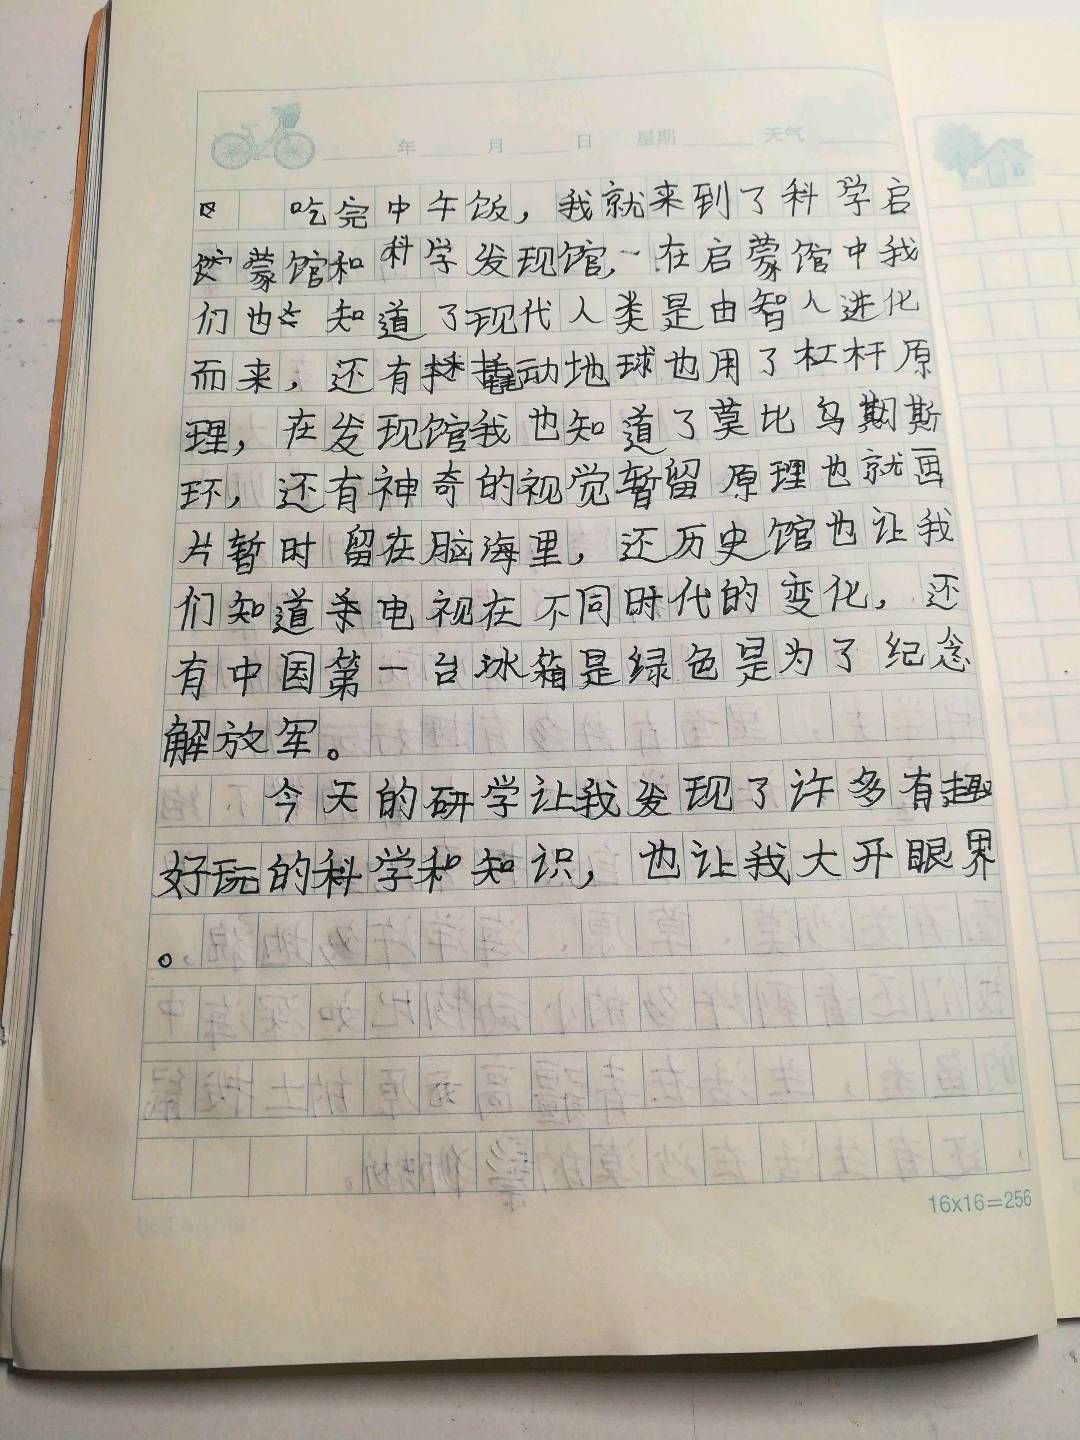 年 月 日 星期 天气
吃完中午饭，我就来到了科学启
蒙馆和科学发现馆，在启蒙馆中我
们也知道了现代人类是由智人进化
而来，还有撬动地球也用了杠杆原
理，在发现馆我也知道了莫比乌斯
环，还有神奇的视觉暂留原理也就画
片暂时留在脑海里，还历史馆也让我
们知道电视在不同时代的变化，还
有中国第一台冰箱是绿色是为了纪念
解放军。
今天的研学让我发现了许多有趣
好玩的科学和知识，也让我大开眼界
。
16x16=256